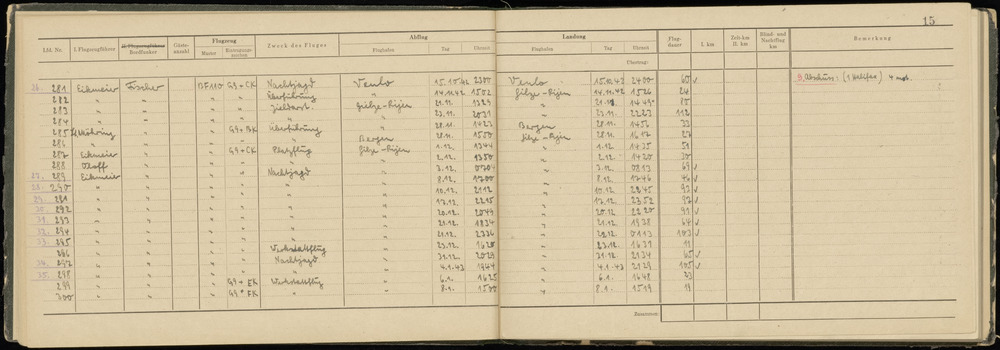 15
Lfd. Nr. I. Flugzeugführer II. Flugzeugführer Bordfunker Gäste-anzahl Flugzeug Muster Zulassungs-zeichen Zweck des Fluges Abflug Flughafen Tag Uhrzeit Landung Flughafen Tag Uhrzeit Flug-dauer I. km Zeit-km II. km Blind- und Nachtflug km Bemerkung
Übertrag:
281 Eikmeier Fischer BF110 G9+CK Nachtjagd Venlo 15.10.42 2300 Venlo 15.10.42 2400 60 9. Abschuss: (1 Halifax) 4 mot.
282 " " " " Überführung " 14.11.42 1502 Gilze-Rijen 14.11.42 1526 24
283 " " " " Gilze-Rijen 21.11. 1324 " 21.11. 1449 85
284 " " " " " 23.11. 2031 " 23.11. 2223 112
285 " G9+BK Überführung " 28.11. 1423 Bergen 28.11. 1456 33
286 " " " " " Bergen 28.11. Gilze-Rijen 28.11. 1617 27
287 Eikmeier " " G9+CK Platzflug Gilze-Rijen 1.12. 1344 " 1.12. 1435 51
288 " " " " " 2.12. 1350 " 2.12. 1420 30
27. 289 Eikmeier " " " Nachtjagd " 3.12. 0704 " 3.12. 0813 69
28. 290 " " " " " " 8.12. 1700 " 8.12. 1746 46
29. 291 " " " " " " 10.12. 2112 " 10.12. 2245 93
30. 292 " " " " " " 17.12. 2215 " 17.12. 2352 97
31. 293 " " " " " " 20.12. 2049 " 20.12. 2220 91
32. 294 " " " " " " 21.12. 1834 " 21.12. 1938 64
33. 295 " " " " " " 21.12. 2330 " 22.12. 0113 103
296 " " " " Werkstattflug " 23.12. 1620 " 23.12. 1631 11
34. 297 " " " " Nachtjagd " 31.12. 2029 " 31.12. 2134 65
35. 298 " " " " " " 4.1.43 1944 " 4.1.43 2129 105
299 " " " G9+EK Werkstattflug " 6.1. 1625 " 6.1. 1648 23
300 " " " G9+FK " " 8.1. 1500 " 8.1. 1519 19
Zusammen: